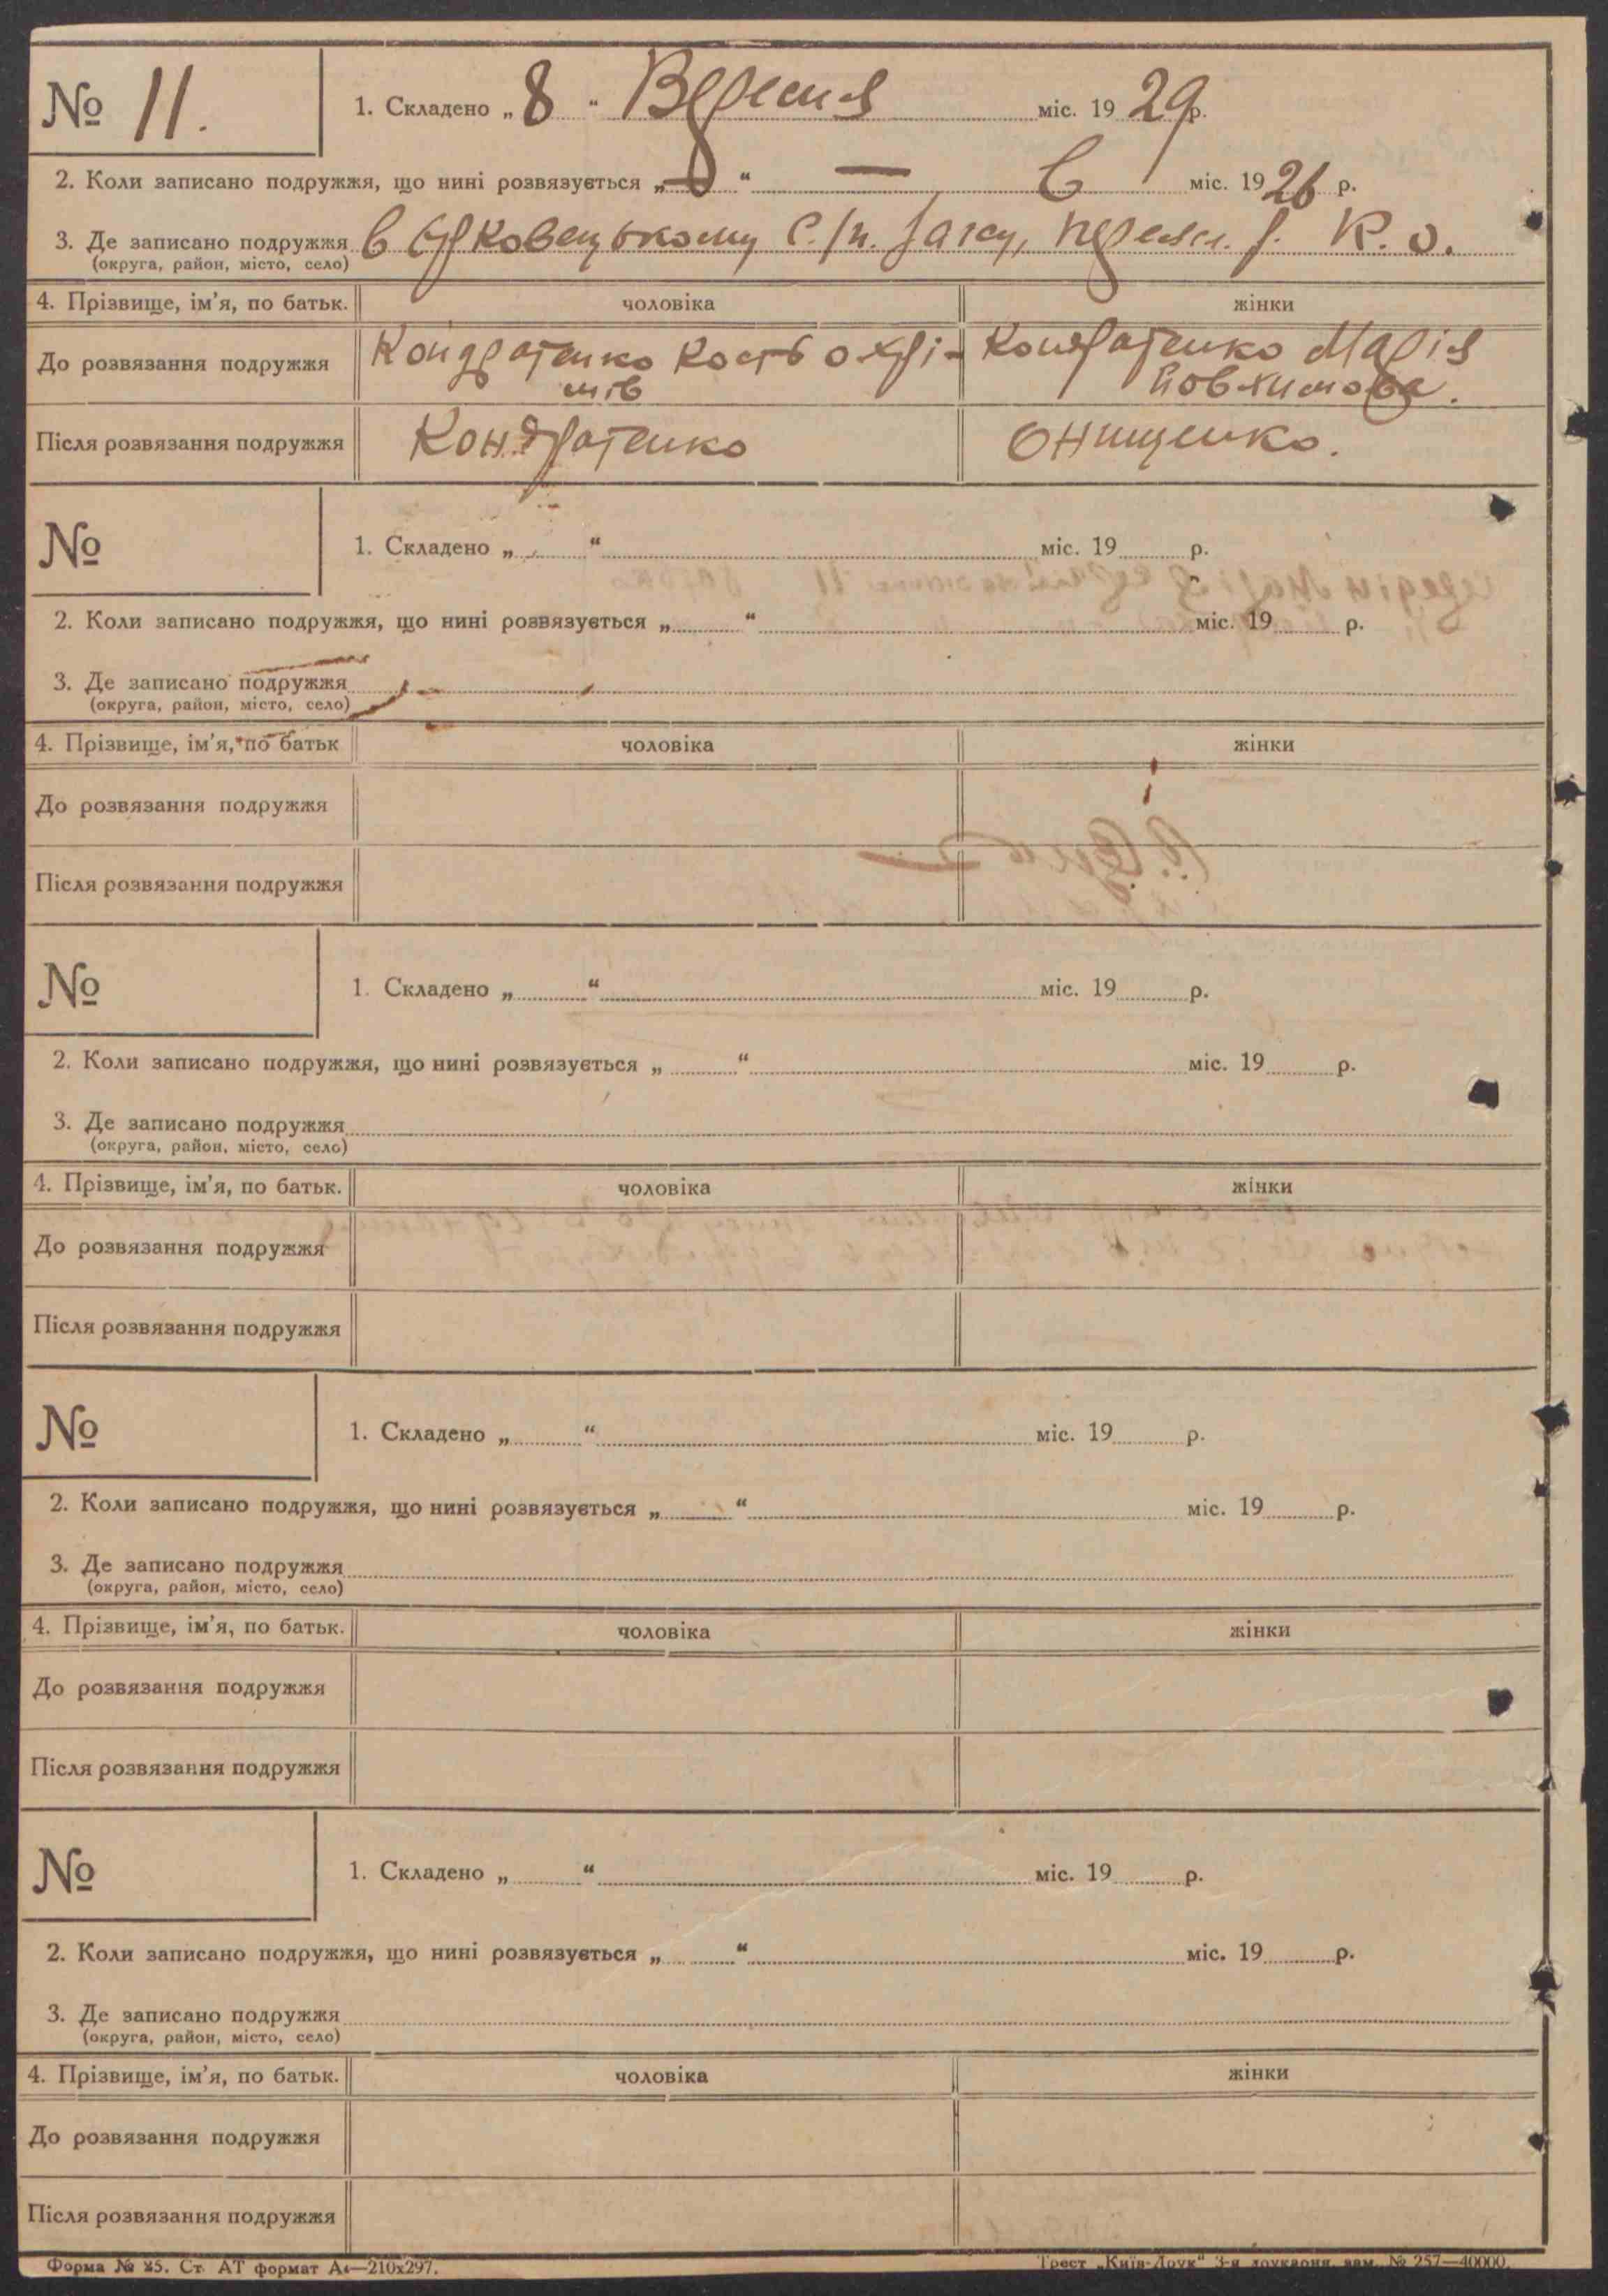 № 11.
1. Складено „ 8 “ Вересня міс. 1929 р.
2. Коли записано подружжя, що нині розвязується „ “ — міс. 1926 р.
3. Де записано подружжя в с/р. К. О.
(округа, район, місто, село)
4. Прізвище, ім'я, по батьк. чоловіка жінки
До розвязання подружжя Кондратенко Кость Охрі- Кондратенко Марія
мів Йовхимова.
Після розвязання подружжя Кондратенко Онищенко.
№
1. Складено „ “ міс. 19 р.
2. Коли записано подружжя, що нині розвязується „ “ міс. 19 р.
3. Де записано подружжя
(округа, район, місто, село)
4. Прізвище, ім'я, по батьк чоловіка жінки
До розвязання подружжя
Після розвязання подружжя
№
1. Складено „ “ міс. 19 р.
2. Коли записано подружжя, що нині розвязується „ “ міс. 19 р.
3. Де записано подружжя
(округа, район, місто, село)
4. Прізвище, ім'я, по батьк. чоловіка жінки
До розвязання подружжя
Після розвязання подружжя
№
1. Складено „ “ міс. 19 р.
2. Коли записано подружжя, що нині розвязується „ “ міс. 19 р.
3. Де записано подружжя
(округа, район, місто, село)
4. Прізвище, ім'я, по батьк. чоловіка жінки
До розвязання подружжя
Після розвязання подружжя
№
1. Складено „ “ міс. 19 р.
2. Коли записано подружжя, що нині розвязується „ “ міс. 19 р.
3. Де записано подружжя
(округа, район, місто, село)
4. Прізвище, ім'я, по батьк. чоловіка жінки
До розвязання подружжя
Після розвязання подружжя
Форма № 25. Ст. АТ формат А4—210х297. Трест „Київ-Друк“ 3-я друкарня, зам. № 257—40000.